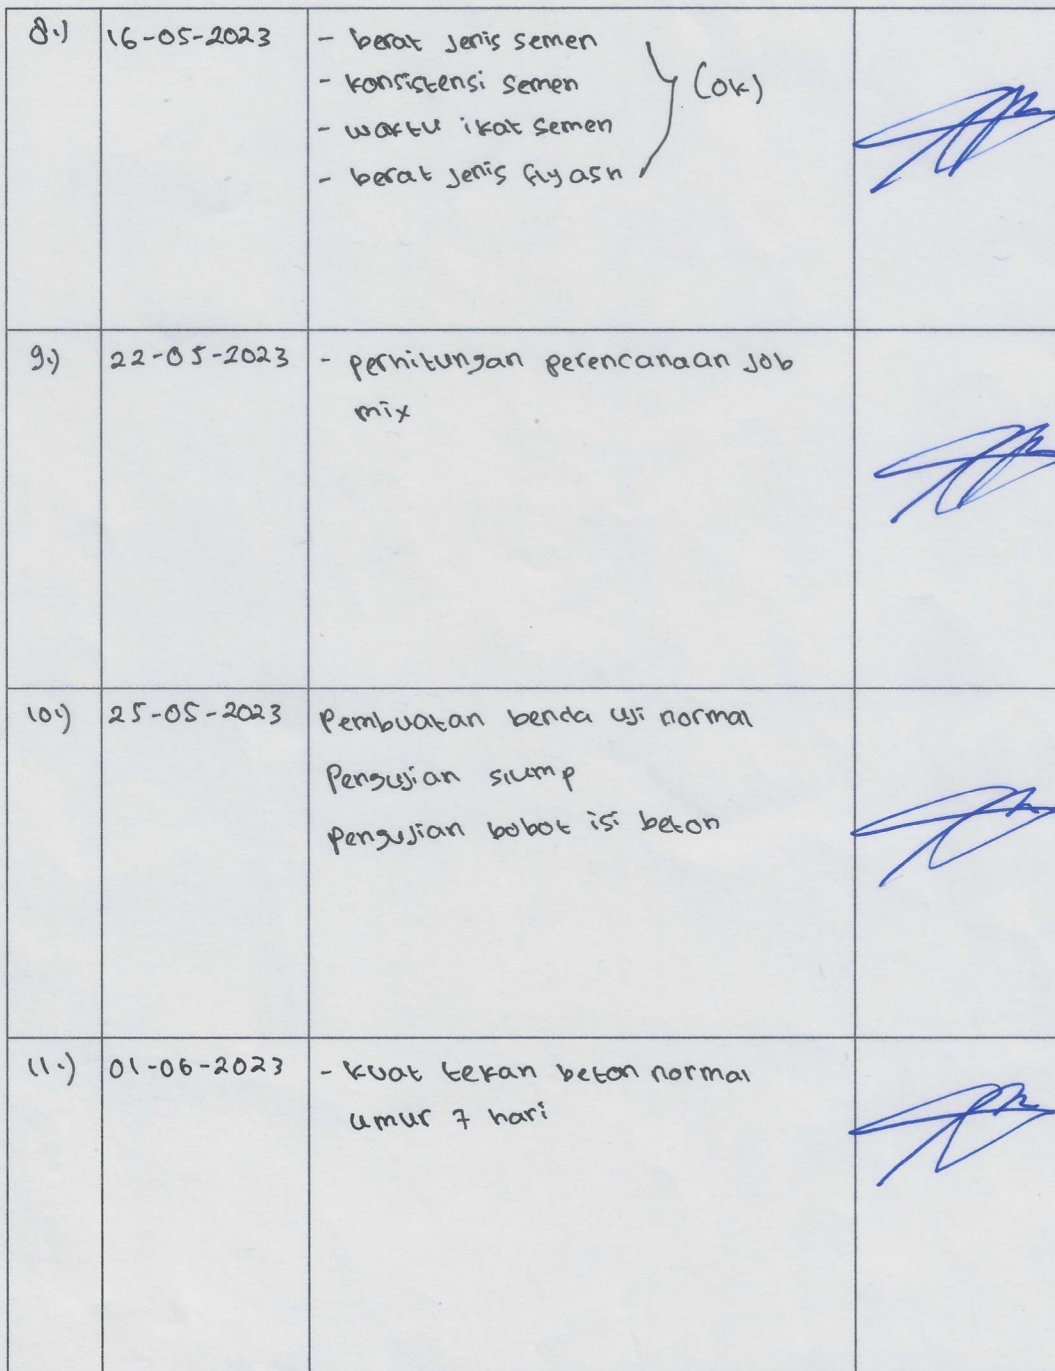 8.) 16-05-2023 - berat jenis semen
- konsistensi semen
- waktu ikat semen
- berat jenis fly ash
(OK)
9.) 22-05-2023 - perhitungan perencanaan job
mix
10.) 25-05-2023 Pembuatan benda uji normal
Pengujian slump
pengujian bobot isi beton
11.) 01-06-2023 - kuat tekan beton normal
umur 7 hari